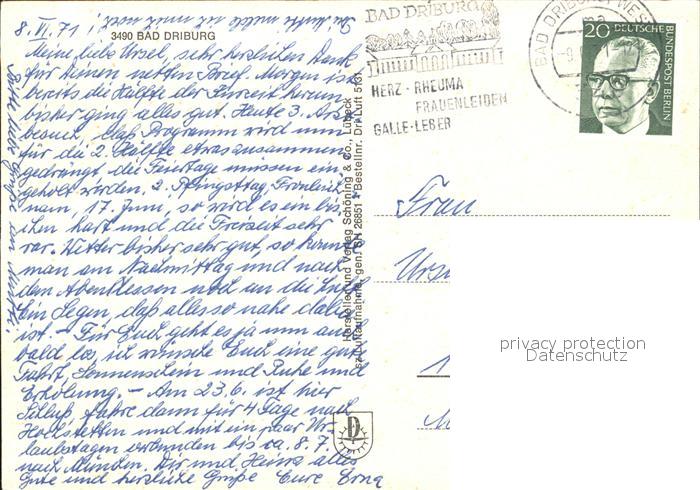 8. VI. 71
3490 BAD DRIBURG
Meine liebe Ursel, sehr herzlichen Dank
für Deinen netten Brief. Morgen ist
bereits die Hälfte der Kurzeit herum
bisher ging alles gut. Heute 3. Arzt-
besuch, das Programm wird nun
für die 2. Hälfte etwas zusammen-
gedrängt, die Feiertage müssen ein-
geholt werden, 2. Pfingsttag, Fronleich-
nam, 17. Juni, so wird es ein bis-
chen hart und die Freizeit sehr
rar. Wetter bisher sehr gut, so kann
man am Nachmittag und nach
dem Abendessen noch an die Luft
Ein Segen, daß alles so nahe dabei
ist. - Für Euch geht es ja nun auch
bald los, ich wünsche Euch eine gute
Fahrt, Sonnenschein und Ruhe und
Erholung. - Am 23.6. ist hier
Schluß, fahre dann für 4 Tage nach
Hochstetten und mit ein paar Ur-
laubstagen verbunden bis ca. 8. 7.
nach München. Dir und Heinz alles
Gute und herzliche Grüße Eure Erna
Hersteller und Verlag Schöning & Co., Lübeck
Luftaufnahme, gen. SH 26851 • Bestellnr. Dri Luft 5131
BAD DRIBURG
HERZ · RHEUMA
FRAUENLEIDEN
GALLE-LEBER
BAD DRIBURG, WESTF
20
DEUTSCHE
BUNDESPOST BERLIN
Frau
privacy protection
Datenschutz